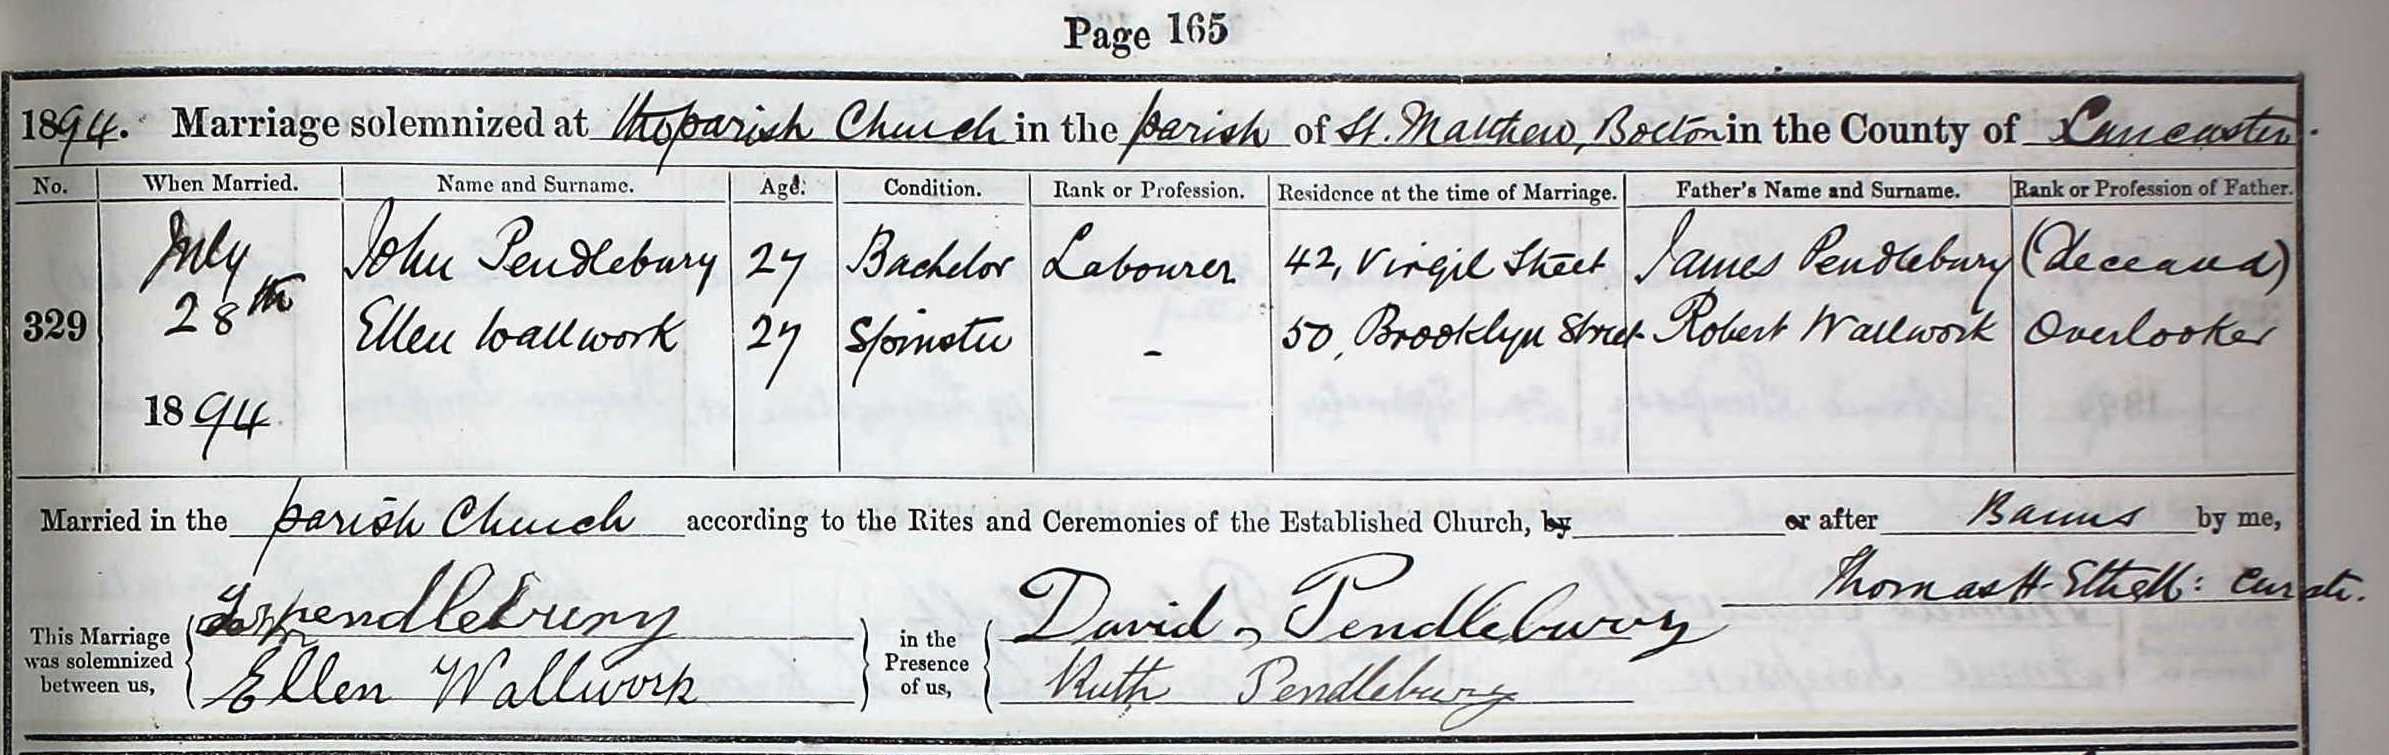 Page 165
1894. Marriage solemnized at the parish Church in the parish of St. Matthew, Bolton in the County of Lancaster.
No. When Married. Name and Surname. Age. Condition. Rank or Profession. Residence at the time of Marriage. Father's Name and Surname. Rank or Profession of Father.
July John Pendlebury 27 Bachelor Labourer 42, Virgil Street James Pendlebury (deceased)
329 28th Ellen Wallwork 27 Spinster - 50, Brooklyn Street Robert Wallwork Overlooker
1894.
Married in the parish Church according to the Rites and Ceremonies of the Established Church, by or after Banns by me,
Thomas H. Ethell: Curate.
This Marriage was solemnized between us, pendlebury in the Presence of us, David Pendlebury
Ellen Wallwork Ruth Pendlebury